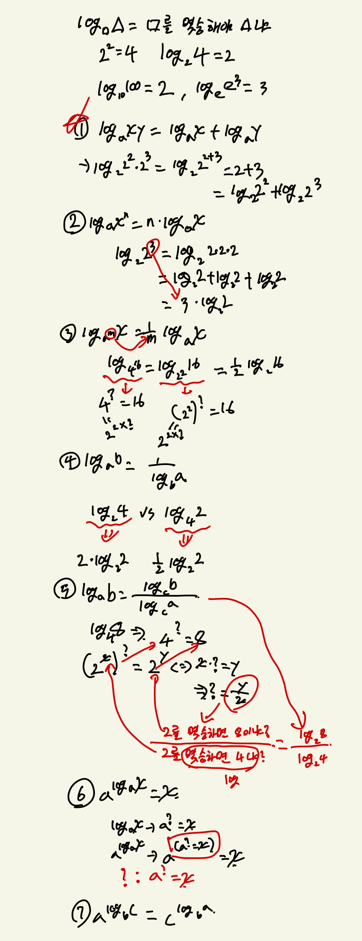 log□△ = □를 몇승해야 △냐
2²=4 log₂4=2
log₁₀100=2, logₑe³=3
① logₐxy = logₐx + logₐy
→ log₂2²·2³ = log₂2²⁺³ = 2+3
= log₂2² + log₂2³
② logₐxⁿ = n·logₐx
log₂2³ = log₂2·2·2
= log₂2 + log₂2 + log₂2
= 3·log₂2
③ log_{a^m}x = 1/m logₐx
log₄16 = log_{2²}16 = 1/2 log₂16
4^? = 16 (2²)^? = 16
2^{2×?} 2^{2×?}
④ logₐb = 1/log_b a
log₂4 vs log₄2
2·log₂2 1/2 log₂2
⑤ logₐb = log_c b / log_c a
log₄8 ⇒ 4^? = 8
(2^x)^? = 2^y ⇔ x·? = y
⇒ ? = y/x
2를 몇승하면 8이냐? / 2를 몇승하면 4냐? = log₂8 / log₂4
log
⑥ a^{logₐx} = x
logₐx → a^? = x
a^{logₐx} → a^{(a^?=x?)} = x
? : a^? = x
⑦ a^{log_b c} = c^{log_b a}